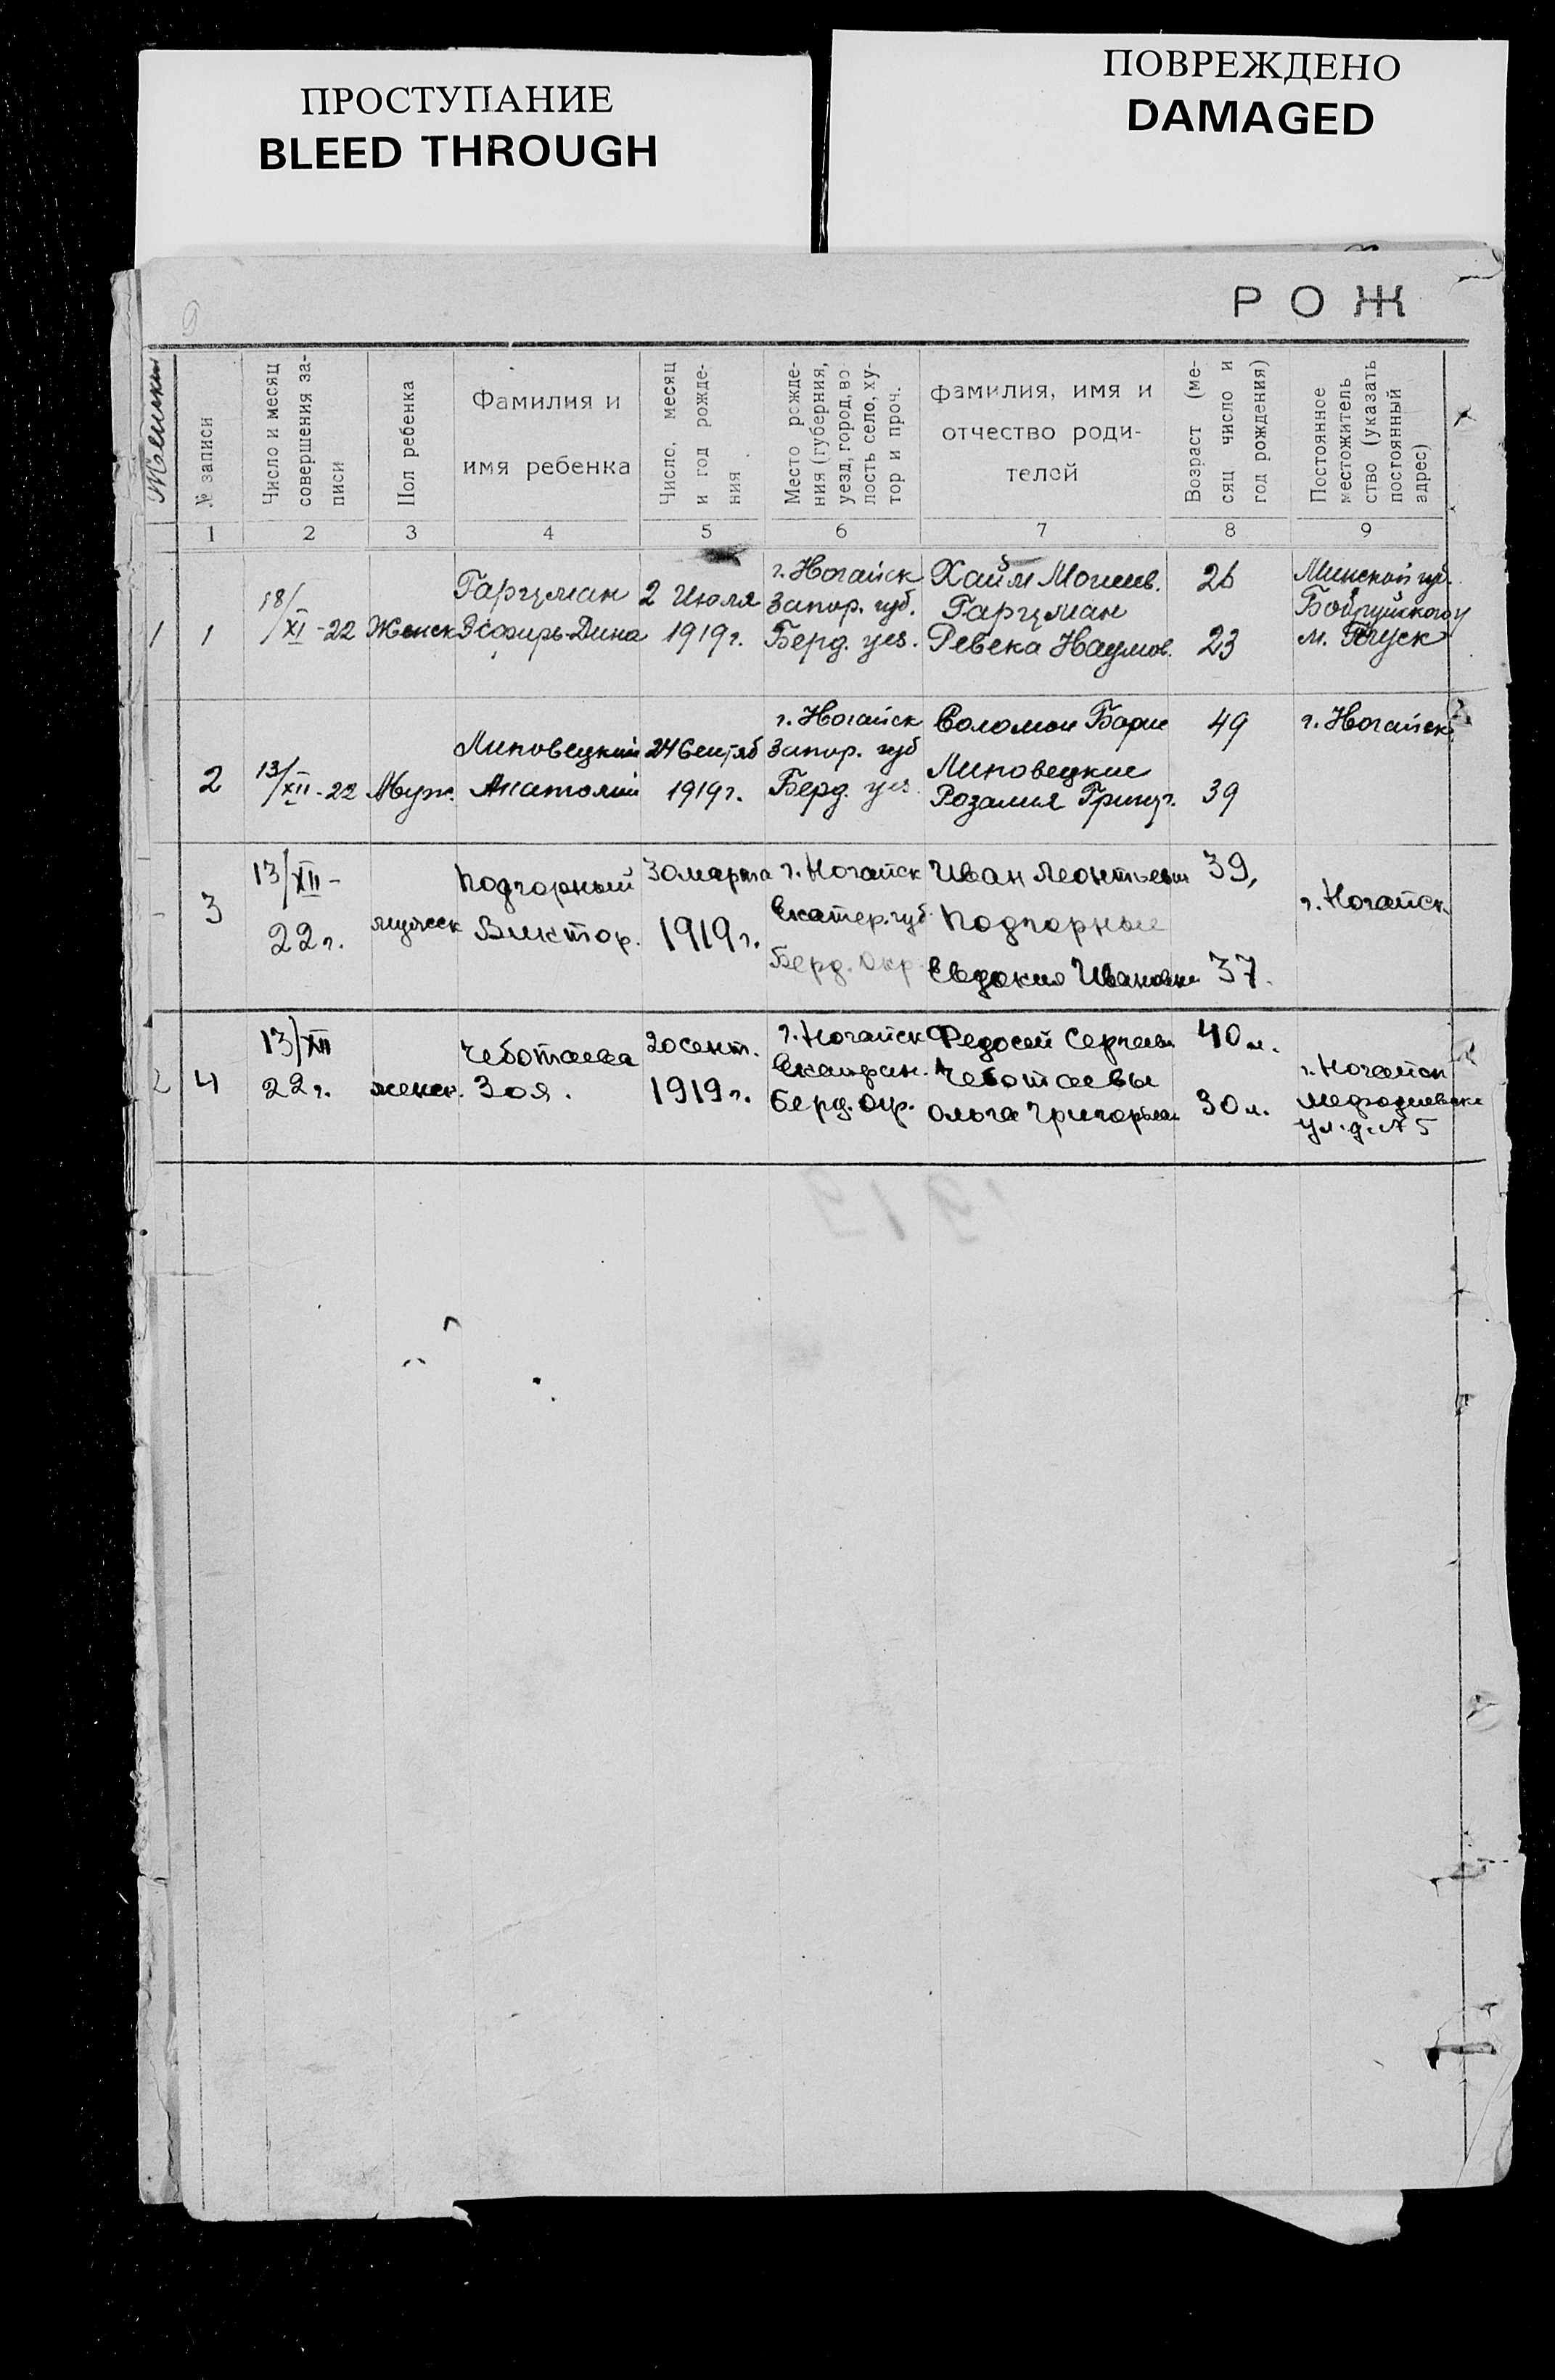 ПРОСТУПАНИЕ
BLEED THROUGH
ПОВРЕЖДЕНО
DAMAGED
РОЖ
№ записи
Число и месяц
совершения за-
писи
Пол ребенка
Фамилия и
имя ребенка
Число, месяц
и год рожде-
ния
Место рожде-
ния (губерния,
уезд, город, во
лость село, ху-
тор и проч.
фамилия, имя и
отчество роди-
телей
Возраст (ме-
сяц число и
год рождения)
Постоянное
местожитель
ство (указать
постоянный
адрес)
1 2 3 4 5 6 7 8 9
1
1
18/XI-22
Женск
Гарцман
Эсфирь-Дина
2 Июля
1919 г.
г. Ногайск
Запор. губ.
Берд. уез.
Хайм Мошев.
Гарцман
Ревека Наумов.
26
23
Минской губ.
Бобруйского у
м.
2
13/XII-22
Муж.
Липовецкий
Анатолий
24 Сентяб
1919 г.
г. Ногайск
Запор. губ
Берд. уез.
Соломон Борис
Липовецкие
Розалия Григ.
49
39
г. Ногайск
3
13/XII-
22 г.
мужск
Подгорный
Виктор.
30 марта
1919 г.
г. Ногайск
Екатер. губ.
Берд. Окр.
Иван Леонтьевич
Подгорные
Евдокия Ивановна
39,
37.
г. Ногайск.
4
13/XII
22 г.
женск.
Чеботаева
Зоя.
20 сент.
1919 г.
г. Ногайск
Берд. окр.
Федосей Сергеев
Чеботаевы
Ольга Григорьев
40 л.
30 л.
г. Ногайск
ул. д. № 5
1919